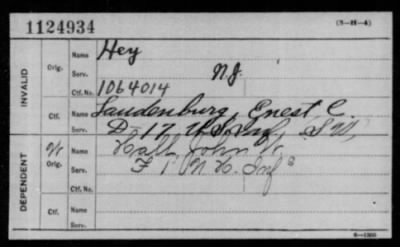 1124934
(3-H-A)
INVALID
Orig.
Name Hey
Serv. N.J.
Ctf. No. 1064014
Ctf.
Name Laudenburg, Enest C.
Serv. D-17, U.S. Inf., S.W.
DEPENDENT
Orig.
Name Hall, John W.
Serv. F 1 N.H. Inf
Ctf.
Name
Serv.